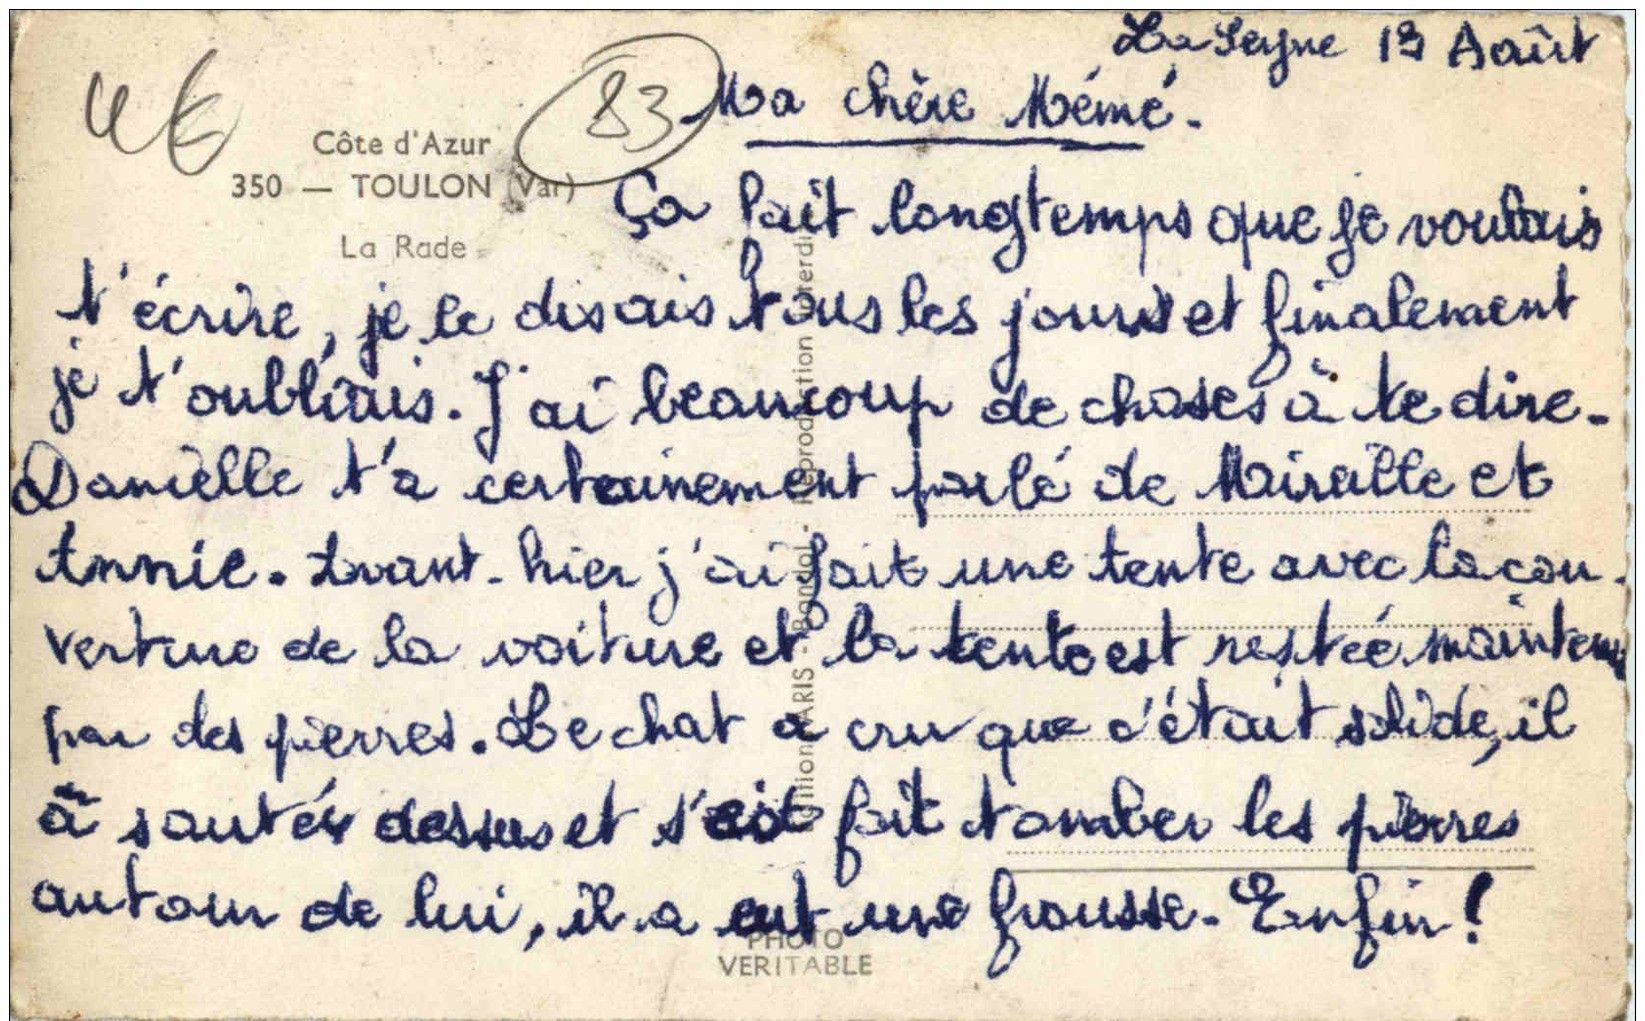 La Seyne 13 Août
Ma chère Mémé.
83
Côte d'Azur
350 — TOULON (Var)
La Rade
Ça fait longtemps que je voulais
t'écrire, je le disais tous les jours et finalement
je t'oubliais. J'ai beaucoup de choses à te dire.
Danielle t'a certainement parlé de Mireille et
Annie. Avant-hier j'ai fait une tente avec la cou-
verture de la voiture et la tente est restée maintenu
par des pierres. Le chat a cru que c'était solide, il
à sauter dessus et s'est fait tomber les pierres
autour de lui, il a eut une frousse. Enfin !
PHOTO
VERITABLE
PARIS - Bandol - Reproduction interdi